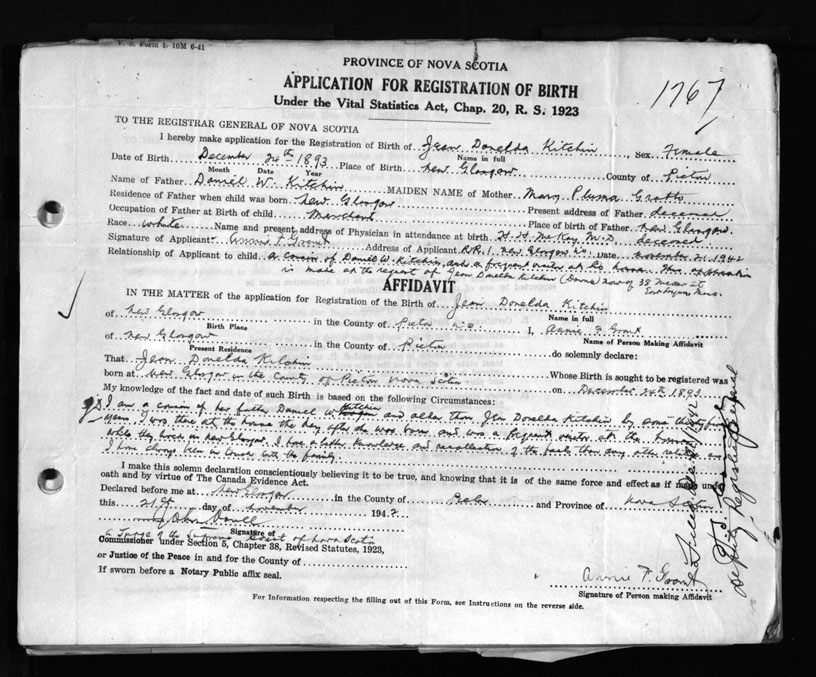 V. S. Form 1- 10M 6-41
PROVINCE OF NOVA SCOTIA
APPLICATION FOR REGISTRATION OF BIRTH
Under the Vital Statistics Act, Chap. 20, R. S. 1923
1767
TO THE REGISTRAR GENERAL OF NOVA SCOTIA
I hereby make application for the Registration of Birth of Jean Donelda Kitchin, Sex Female
Name in full
Date of Birth December 24th 1893 Place of Birth New Glasgow County of Pictou
Month Date Year
Name of Father Daniel W. Kitchin MAIDEN NAME of Mother Mary Pluma Grotto
Residence of Father when child was born New Glasgow Present address of Father deceased
Occupation of Father at Birth of child Merchant Place of birth of Father New Glasgow
Race White Name and present address of Physician in attendance at birth H. H. McKay M.D. deceased
Signature of Applicant Annie F. Grant Address of Applicant R.R. 1 New Glasgow N.S. Date November 21, 1942
Relationship of Applicant to child a cousin of Daniel W. Kitchin, and a frequent visitor at the house. This application
is made at the request of Jean Donelda Kitchin now of 38
AFFIDAVIT
IN THE MATTER of the application for Registration of the Birth of Jean Donelda Kitchin
Name in full
of New Glasgow in the County of Pictou N.S. I, Annie F. Grant
Birth Place Name of Person Making Affidavit
of New Glasgow in the County of Pictou do solemnly declare:
Present Residence
That Jean Donelda Kitchin Whose Birth is sought to be registered was
born at New Glasgow in the County of Pictou Nova Scotia on December 24th 1893
My knowledge of the fact and date of such Birth is based on the following Circumstances:
I am a cousin of her father Daniel W. Kitchin and older than Jean Donelda Kitchin by some
years. I was there at the house the day after she was born and was a frequent visitor at the house
while they lived in New Glasgow. I have a better knowledge and recollection of the facts than any other relative and
I have always been in touch with the family.
I make this solemn declaration conscientiously believing it to be true, and knowing that it is of the same force and effect as if made under
oath and by virtue of The Canada Evidence Act.
Declared before me at New Glasgow in the County of Pictou and Province of Nova Scotia
this 21st day of November 1942
Signature of
a Judge of the Supreme Court of Nova Scotia
Commissioner under Section 5, Chapter 38, Revised Statutes, 1923,
or Justice of the Peace in and for the County of
If sworn before a Notary Public affix seal.
Annie F. Grant
Signature of Person making Affidavit
For Information respecting the filling out of this Form, see Instructions on the reverse side.
Deputy Registrar General